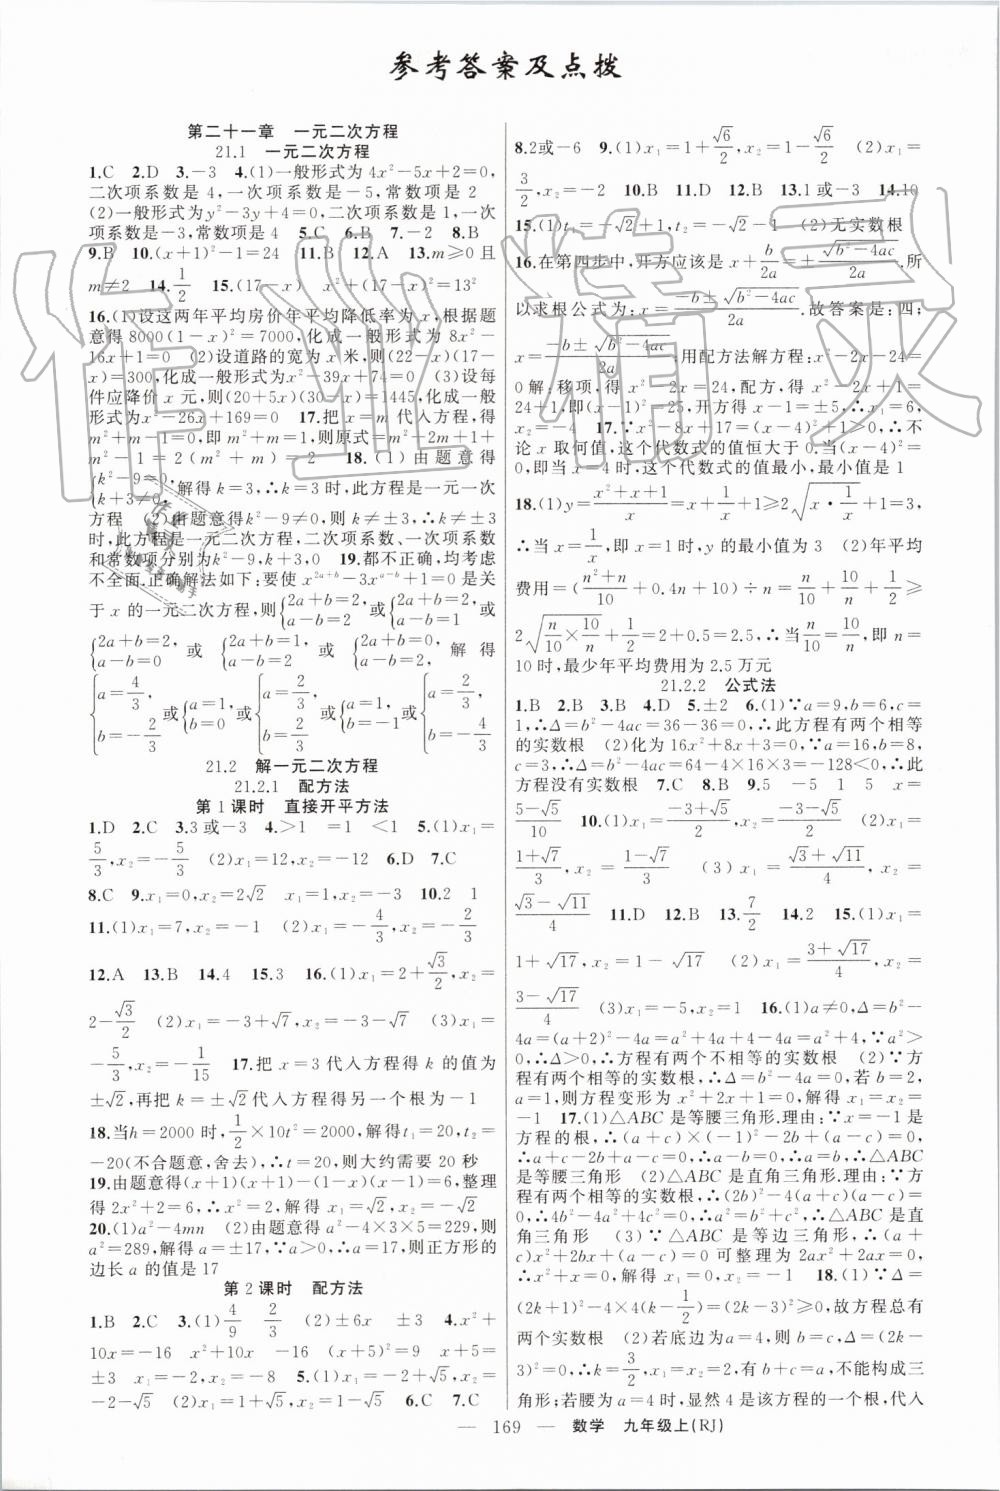 参考答案及点拨
第二十一章　一元二次方程
21.1　一元二次方程
1.C　2.D　3.－3　4.(1)一般形式为4x²－5x＋2＝0,
二次项系数是4,一次项系数是－5,常数项是2
(2)一般形式为y²－3y＋4＝0,二次项系数是1,一次
项系数是－3,常数项是4　5.C　6.B　7.－2　8.B
9.B　10.(x＋1)²－1＝24　11.B　12.A　13.m≥0且
m≠2　14.1/2　15.(17－x)　x²＋(17－x)²＝13²
16.(1)设这两年平均房价年平均降低率为x,根据题
意得8000(1－x)²＝ 化成一般形式为8x²－
16x＋1＝0　(2)设道路的宽为x米,则(22－x)(17－
x)＝300,化成一般形式为x²－39x＋74＝0　(3)设每
件应降价x元,则(20＋5x)(30－x)＝1445,化成一般
形式为x²－26x＋169＝0　17.把x＝m代入方程,得
m²＋m－1＝0,即m²＋m＝1,则原式＝m²＋2m＋1＋
m²－1＝2(m²＋m)＝2　18.(1)由题意得
{k²－9＝0, k＋3≠0, 解得k＝3,∴k＝3时,此方程是一元一次
方程　(2)由题意得k²－9≠0,则k≠±3,∴k≠±3
时,此方程是一元二次方程,二次项系数、一次项系数
和常数项分别为k²－9,k＋3,0　19.都不正确,均考虑
不全面.正确解法如下:要使x^(2a＋b)－3x^(a－b)＋1＝0是关
于x的一元二次方程,则{2a＋b＝2, a－b＝2 或{2a＋b＝2, a－b＝1 或
{2a＋b＝2, a－b＝0 或{2a＋b＝1, a－b＝2 或{2a＋b＝0, a－b＝2, 解得
{a＝4/3, b＝－2/3 或{a＝1, b＝0 或{a＝2/3, b＝2/3 或{a＝1, b＝－1 或{a＝2/3, b＝－4/3
21.2　解一元二次方程
21.2.1　配方法
第1课时　直接开平方法
1.D　2.C　3.3或－3　4.＞1　＝1　＜1　5.(1)x₁＝
5/3,x₂＝－5/3　(2)x₁＝12,x₂＝－12　6.D　7.C
8.C　9.x₁＝0,x₂＝2√2　x₁＝1,x₂＝－3　10.2　1
11.(1)x₁＝7,x₂＝－1　(2)x₁＝－4/3,x₂＝－2/3
12.A　13.B　14.4　15.3　16.(1)x₁＝2＋√3/2,x₂＝
2－√3/2　(2)x₁＝－3＋√7,x₂＝－3－√7　(3)x₁＝
－5/3,x₂＝－1/15　17.把x＝3代入方程得k的值为
±√2,再把k＝±√2代入方程得另一个根为－1
18.当h＝2000时,1/2×10t²＝2000,解得t₁＝20,t₂＝
－20(不合题意,舍去),∴t＝20,则大约需要20秒
19.由题意得(x＋1)(x＋1)－(1－x)(x－1)＝6,整理
得2x²＋2＝6,∴x²＝2,解得x₁＝√2,x₂＝－√2
20.(1)a²－4mn　(2)由题意得a²－4×3×5＝229,则
a²＝289,解得a＝±17,∵a＞0,∴a＝17,则正方形的
边长a的值是17
第2课时　配方法
1.B　2.C　3.(1)4/9　2/3　(2)±6x　±3　4.x²＋
10x＝－16　x²＋10x　－16　(x＋5)²＝9　x＋5＝
±3　x₁＝－2,x₂＝－8　5.(1)x₁＝－2＋√2,x₂＝
－2－√2　(2)x₁＝2,x₂＝－1　6.C　7.C
8.2或－6　9.(1)x₁＝1＋√6/2,x₂＝1－√6/2　(2)x₁＝
3/2,x₂＝－2　10.B　11.D　12.B　13.1或－3　14.10
15.(1)t₁＝－√2＋1,t₂＝－√2－1　(2)无实数根
16.在第四步中,开方应该是x＋b/2a＝±√(b²－4ac)/2a.所
以求根公式为:x＝(－b±√(b²－4ac))/2a.故答案是:四;
x＝(－b±√(b²－4ac))/2a.用配方法解方程:x²－2x－24＝
0解:移项,得x²－2x＝24,配方,得x²－2x＋1＝
24＋1,即(x－1)²＝25,开方得x－1＝±5,∴x₁＝6,
x₂＝－4　17.∵x²－8x＋17＝(x－4)²＋1＞0,∴不
论x取何值,这个代数式的值恒大于0.当(x－4)²＝
0,即当x＝4时,这个代数式的值最小,最小值是1
18.(1)y＝(x²＋x＋1)/x＝x＋1/x＋1≥2√(x·1/x)＋1＝3,
∴当x＝1/x,即x＝1时,y的最小值为3　(2)年平均
费用＝((n²＋n)/10＋0.4n＋10)÷n＝n/10＋10/n＋1/2≥
2√(n/10×10/n)＋1/2＝2＋0.5＝2.5,∴当n/10＝10/n,即n＝
10时,最少年平均费用为2.5万元
21.2.2　公式法
1.B　2.B　3.B　4.D　5.±2　6.(1)∵a＝9,b＝6,c＝
1,∴Δ＝b²－4ac＝36－36＝0,∴此方程有两个相等
的实数根　(2)化为16x²＋8x＋3＝0,∵a＝16,b＝8,
c＝3,∴Δ＝b²－4ac＝64－4×16×3＝－128＜0,∴此
方程没有实数根　7.C　8.B　9.5　－5　1　5　x＝
(5－√5)/10　10.(1)x₁＝(－3＋√5)/2,x₂＝(－3－√5)/2　(2)x₁＝
(1＋√7)/3,x₂＝(1－√7)/3　(3)x₁＝(√3＋√11)/4,x₂＝
(√3－√11)/4　11.D　12.B　13.7/2　14.2　15.(1)x₁＝
1＋√17,x₂＝1－√17　(2)x₁＝(3＋√17)/4,x₂＝
(3－√17)/4　(3)x₁＝－5,x₂＝1　16.(1)a≠0,Δ＝b²－
4a＝(a＋2)²－4a＝a²＋4a＋4－4a＝a²＋4,∵a²＞
0,∴Δ＞0,∴方程有两个不相等的实数根　(2)∵方
程有两个相等的实数根,∴Δ＝b²－4a＝0,若b＝2,
a＝1,则方程变形为x²＋2x＋1＝0,解得x₁＝x₂＝
－1　17.(1)△ABC是等腰三角形.理由:∵x＝－1是
方程的根,∴(a＋c)×(－1)²－2b＋(a－c)＝0,
∴a＋c－2b＋a－c＝0,∴a－b＝0,∴a＝b,∴△ABC
是等腰三角形　(2)△ABC是直角三角形.理由:∵
方程有两个相等的实数根,∴(2b)²－4(a＋c)(a－c)＝
0,∴4b²－4a²＋4c²＝0,∴a²＝b²＋c²,∴△ABC是直
角三角形　(3)∵△ABC是等边三角形,∴(a＋
c)x²＋2bx＋(a－c)＝0可整理为2ax²＋2ax＝0,
∴x²＋x＝0,解得x₁＝0,x₂＝－1　18.(1)∵Δ＝
(2k＋1)²－4×4(k－1/2)＝(2k－3)²≥0,故方程总有
两个实数根　(2)若底边为a＝4,则b＝c,Δ＝(2k－
3)²＝0,∴k＝3/2,∴x₁＝x₂＝2,有b＋c＝a,不能构成三
角形;若腰为a＝4时,显然4是该方程的一个根,代入
169　数学　九年级上(RJ)
作业精灵